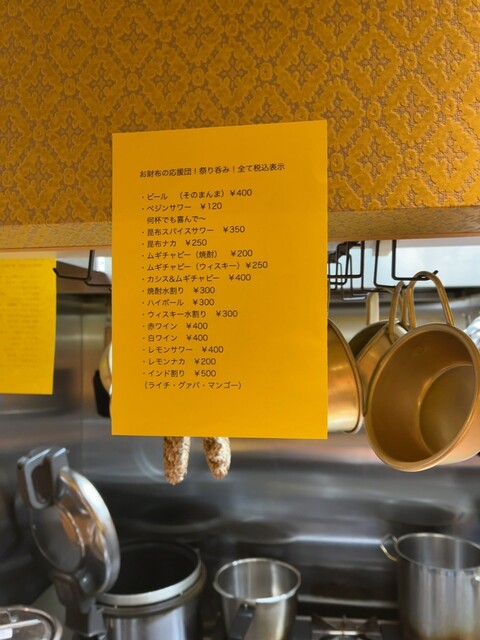 お財布の応援団！祭り呑み！全て税込表示
・ビール　（そのまんま）¥400
・ベジンサワー　¥120
何杯でも喜んで〜
・昆布スパイスサワー　¥350
・昆布ナカ　¥250
・ムギチャピー（焼酎）　¥200
・ムギチャピー（ウィスキー）¥250
・カシス&ムギチャピー　¥400
・焼酎水割り　¥300
・ハイボール　¥300
・ウィスキー水割り　¥300
・赤ワイン　¥400
・白ワイン　¥400
・レモンサワー　¥400
・レモンナカ　¥200
・インド割り　¥500
（ライチ・グァバ・マンゴー）